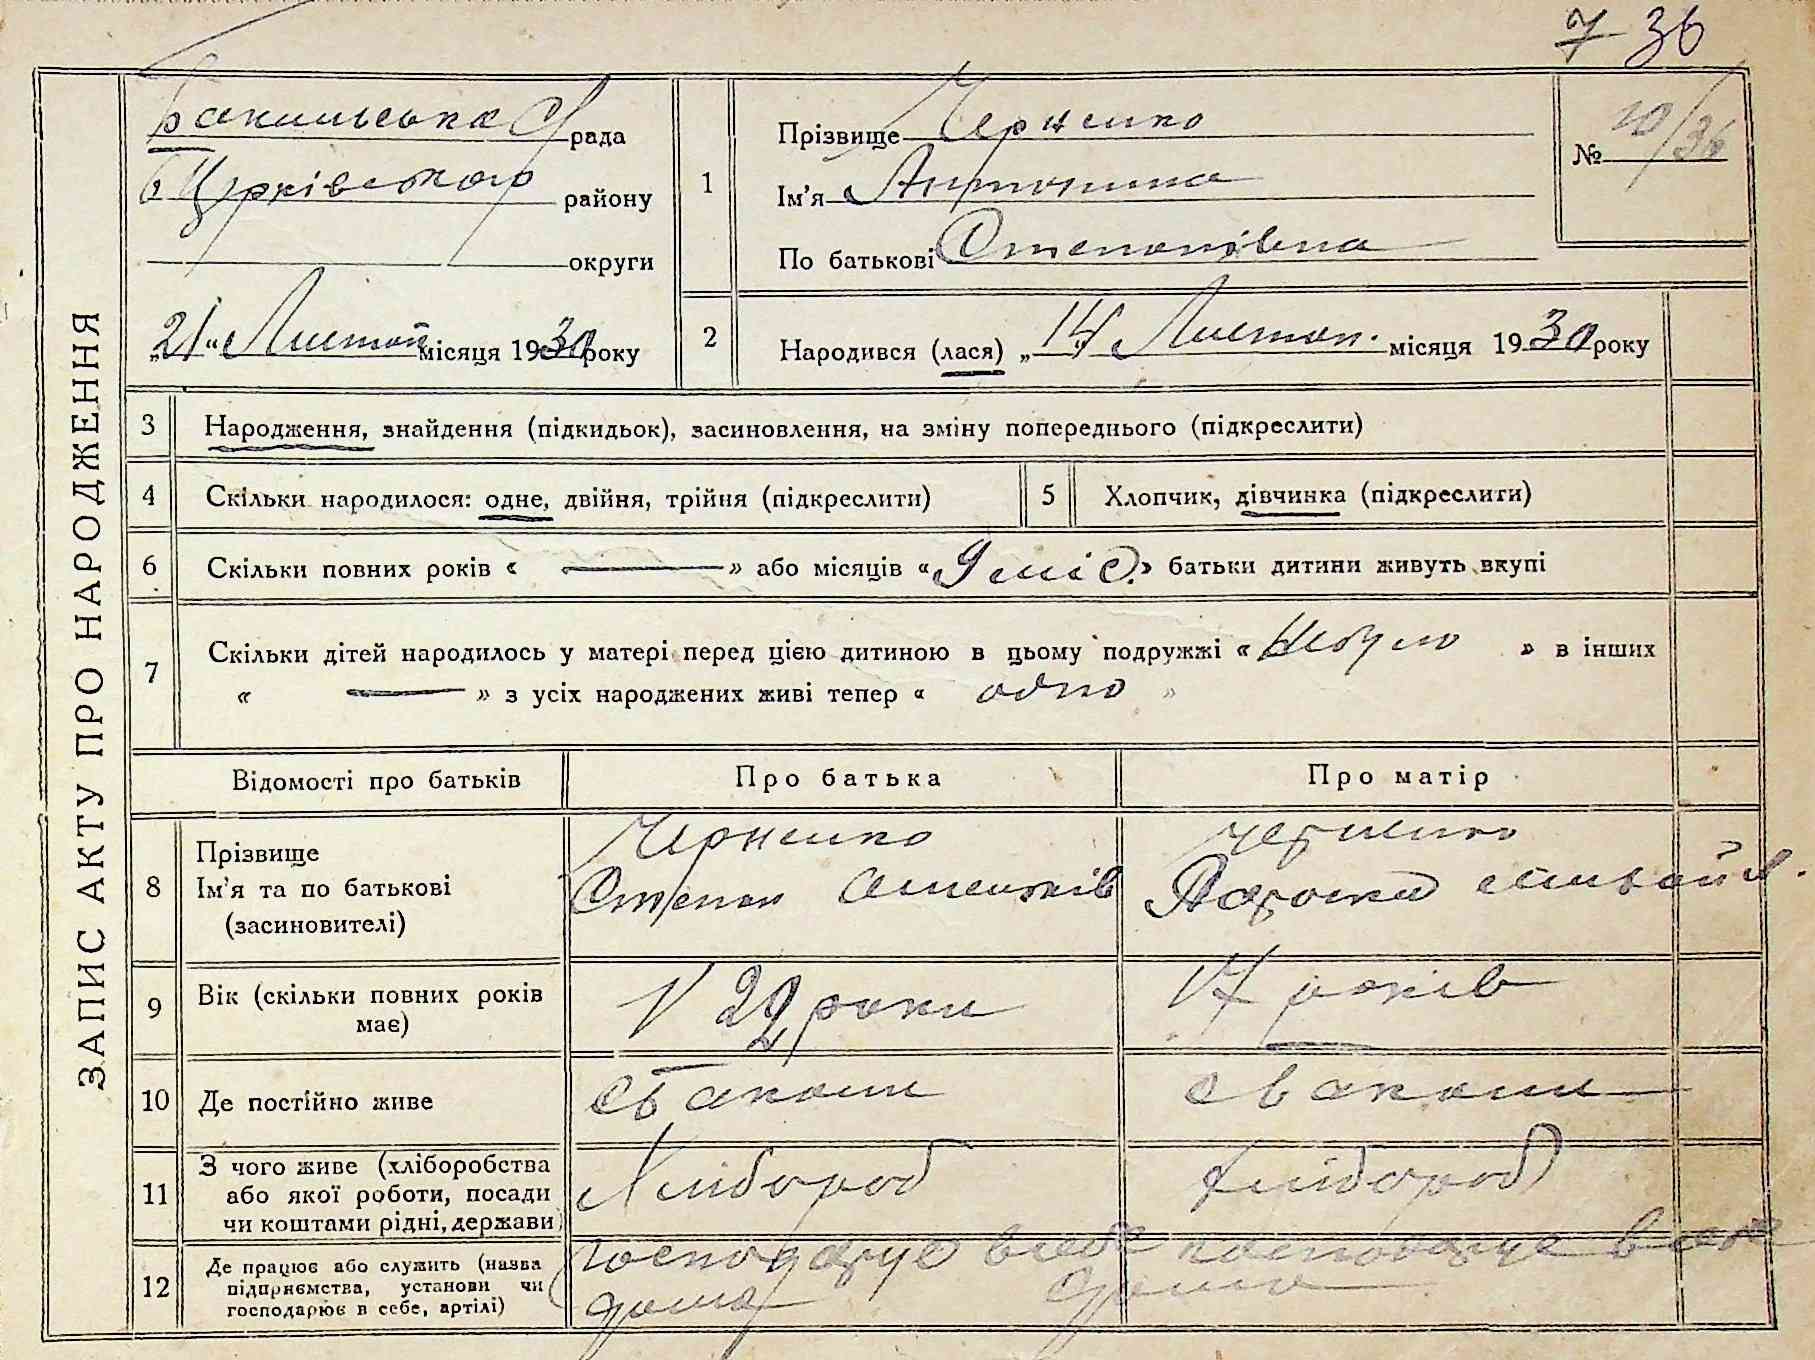 7 36
ЗАПИС АКТУ ПРО НАРОДЖЕННЯ
Бакильська С/рада
Б Церківського району
округи
„21“ Листоп місяця 1930 року
1
Прізвище Черненко
Ім'я Антонина
По батькові Степанівна
№ 10/36
2
Народився (лася) „14 Листоп. місяця 1930 року
3 Народження, знайдення (підкидьок), засиновлення, на зміну попереднього (підкреслити)
4 Скільки народилося: одне, двійня, трійня (підкреслити)
5 Хлопчик, дівчинка (підкреслити)
6 Скільки повних років « — » або місяців « 9 міс. » батьки дитини живуть вкупі
7 Скільки дітей народилось у матері перед цією дитиною в цьому подружжі « Небуло » в інших
« — » з усіх народжених живі тепер « одно »
Відомості про батьків Про батька Про матір
8 Прізвище
Ім'я та по батькові
(засиновителі)
Черненко
Степан
Черненко
9 Вік (скільки повних років
має)
22 роки
17 років
10 Де постійно живе
11 З чого живе (хліборобства
або якої роботи, посади
чи коштами рідні, держави)
Хлібороб
Хлібороб
12 Де працює або служить (назва
підприємства, установи чи
господарює в себе, артілі)
Господарує в себе
дома
господарує в себе
дома